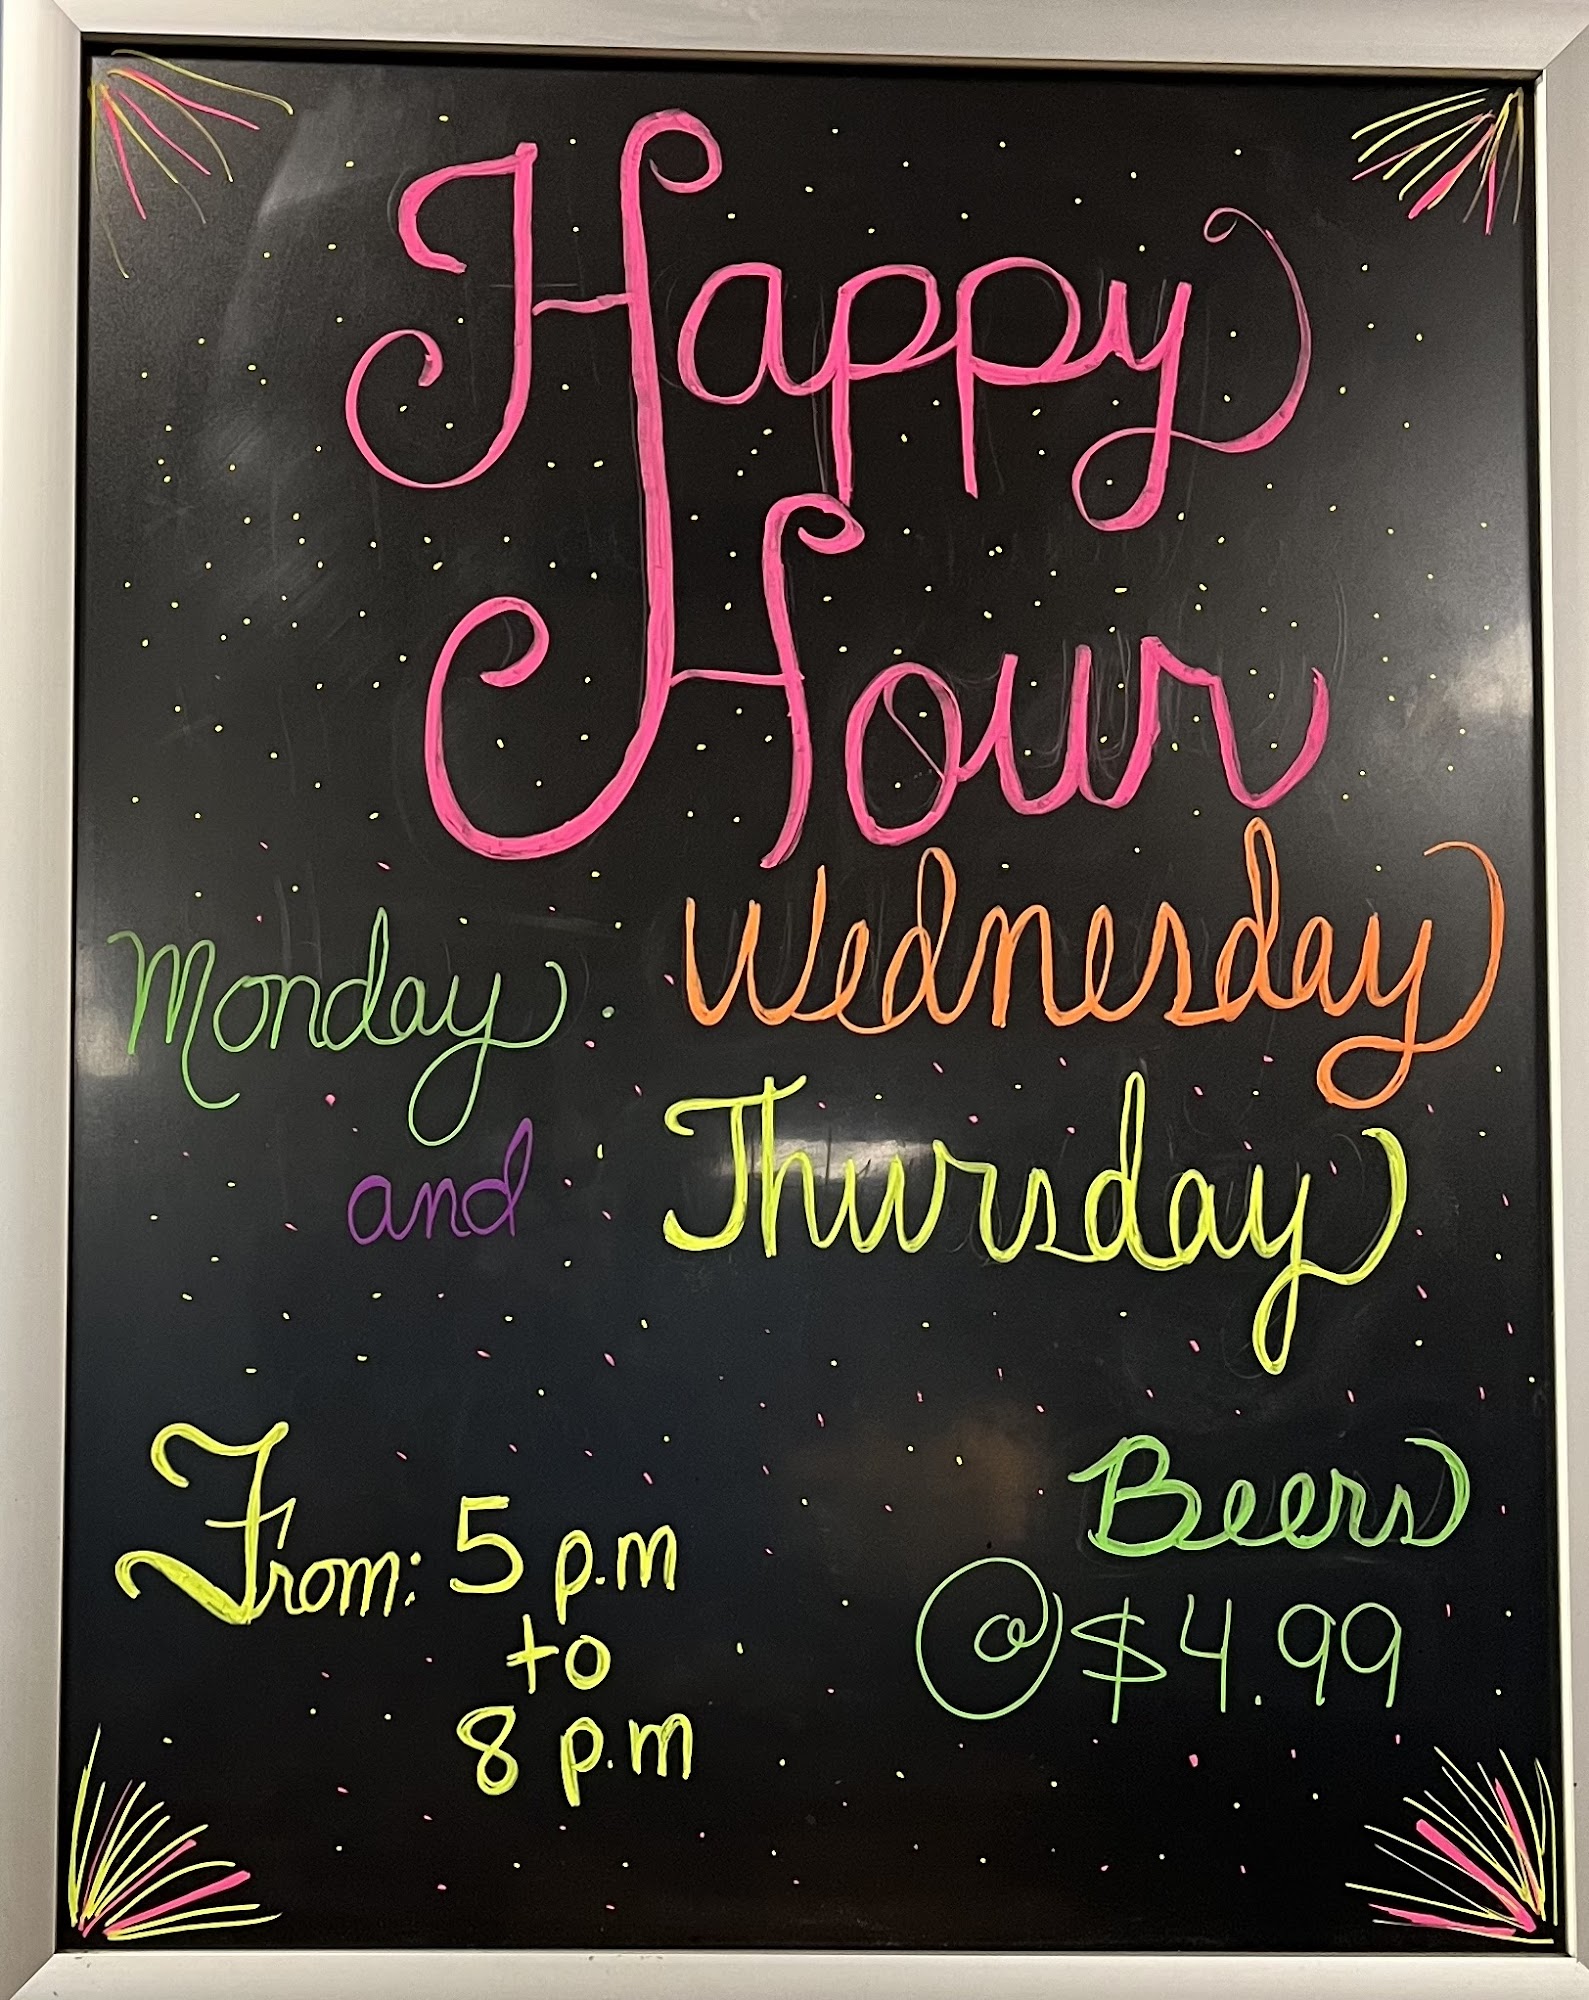 Happy
Hour
Monday. Wednesday
and Thursday
From: 5 p.m
to
8 p.m
Beers
@ $4.99